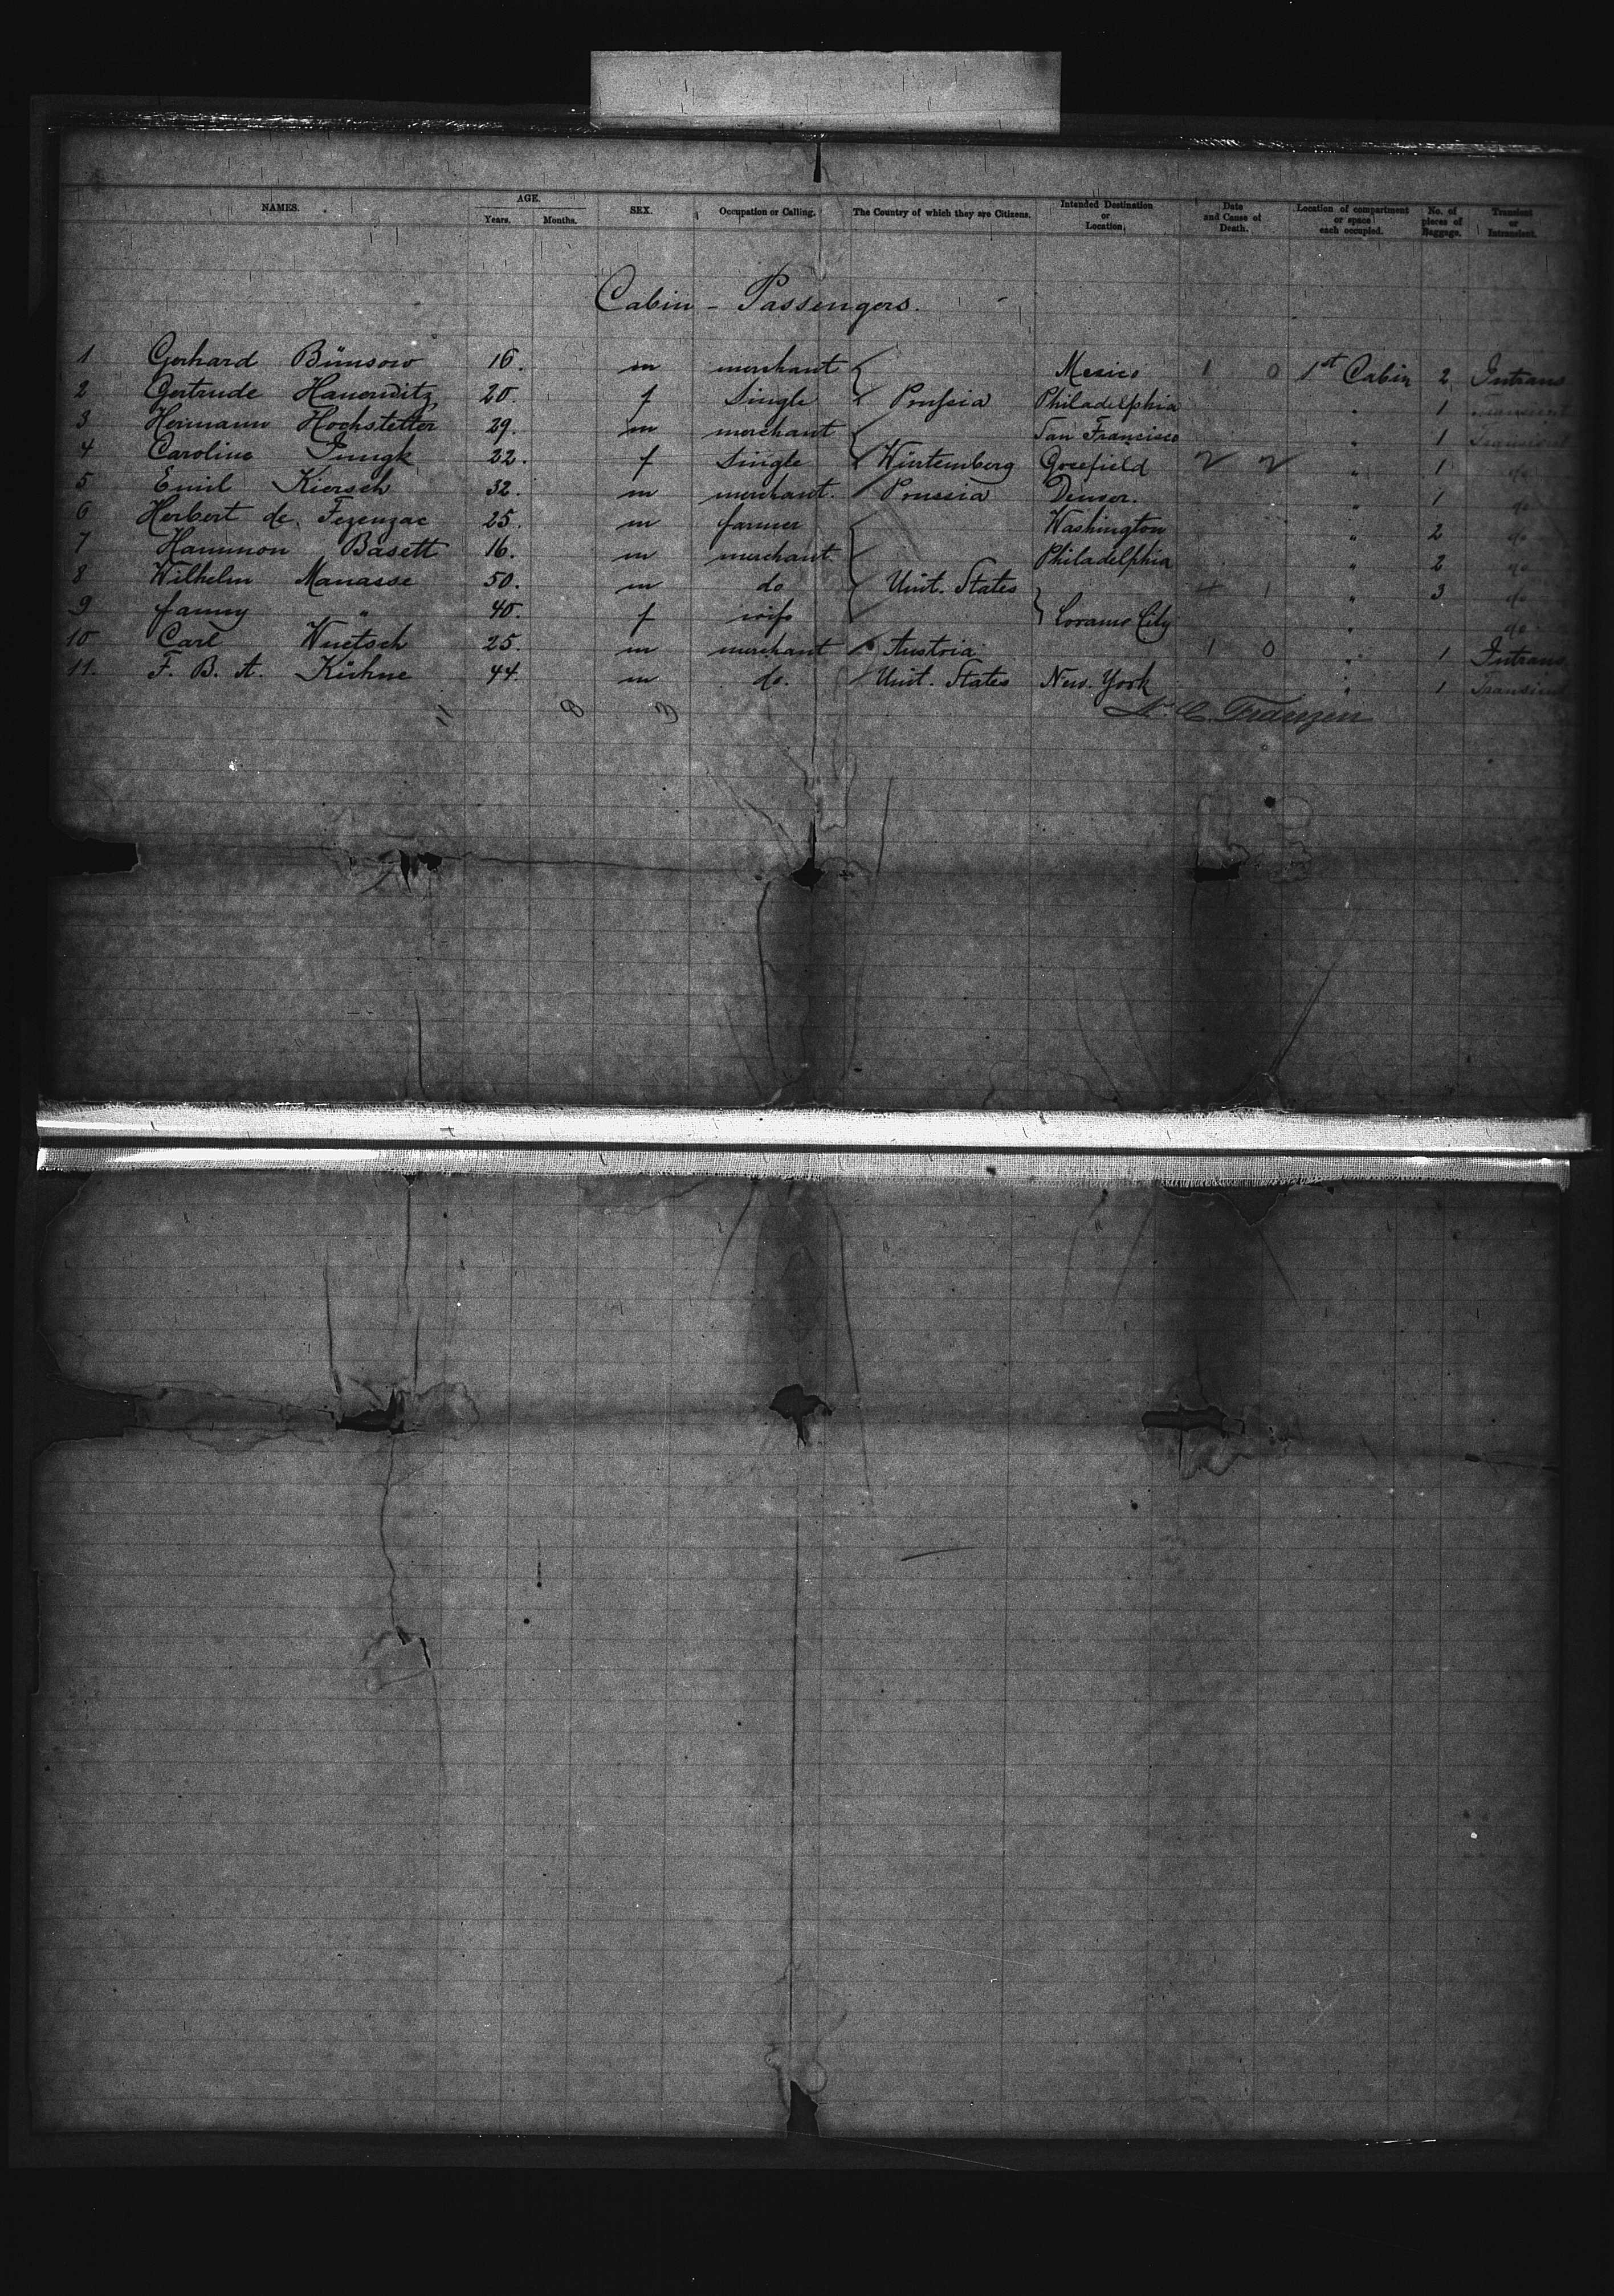 NAMES. AGE. Years. Months. SEX. Occupation or Calling. The Country of which they are Citizens. Intended Destination or Location. Date and Cause of Death. Location of compartment or space each occupied. No. of pieces of Baggage. Transient or Intransient.
Cabin - Passengers.
1 Gerhard Bünsow 16. m merchant Mexico 1 0 1st Cabin 2 Intrans
2 Gertrude Hanowitz 20. f Single Prussia Philadelphia " 1 Transient
3 Hermann Hochstetter 29. m merchant San Francisco " 1 Transient
4 Caroline Jungk 22. f Single Würtemberg 2 2 " 1 do
5 Emil Kiersch 32. m merchant. Prussia Denver. " 1 do
6 Herbert de Fezenzac 25. m farmer Washington " 2 do
7 Hammon Basett 16. m merchant. Philadelphia " 2 do
8 Wilhelm Manasse 50. m do Unit. States 4 1 " 3 do
9 fanny " 40. f wife City " do
10 Carl Wuetsch 25. m merchant Austria 1 0 " 1 Intrans
11. F. B. A. Kühne 44. m do. Unit. States New. York " 1 Transient
11 8 3 Franzen